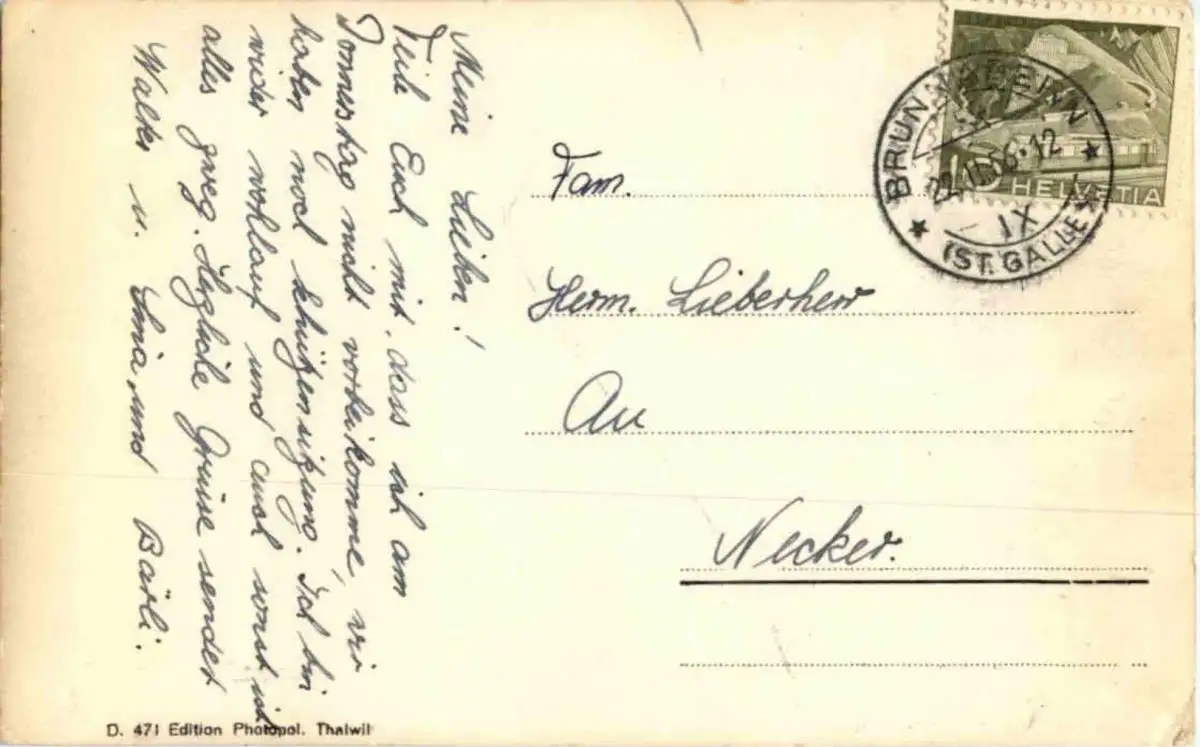 Meine Lieben!
Teile Euch mit, dass ich am
Donnerstag nicht vorbeikomme, wir
haben noch Skützensitzung. Ich bin
wider wohlauf und auch sonst ist
alles zweg. Herzliche Grüsse sendet
Walter u. Lina und Bärli.
Fam.
Herm. Lieberherr
Au
Necker.
BRUNNADERN
22. 56-12
IX
(ST. GALLEN)
10 HELVETIA
D. 471 Edition Photopol. Thalwil